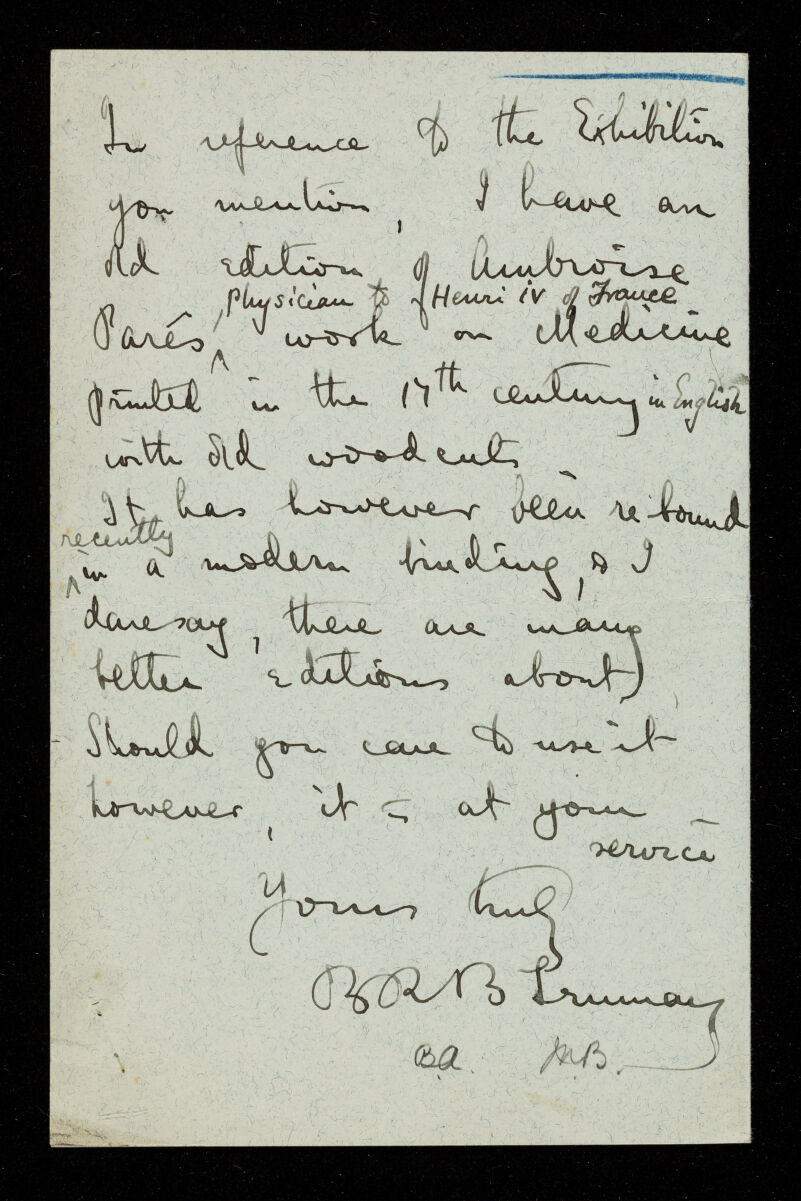 In reference to the Exhibition
you mention, I have an
old edition of Ambroise
, Physician to Henri iv of France
Parés, work on Medicine
printed in the 17th century in English
with old woodcuts
It has however been re-bound
recently
in a modern binding, & I
daresay, there are many
better editions about)
Should you care to use it
however, it is at your
service
Yours truly
B R B
B.A. M.B.